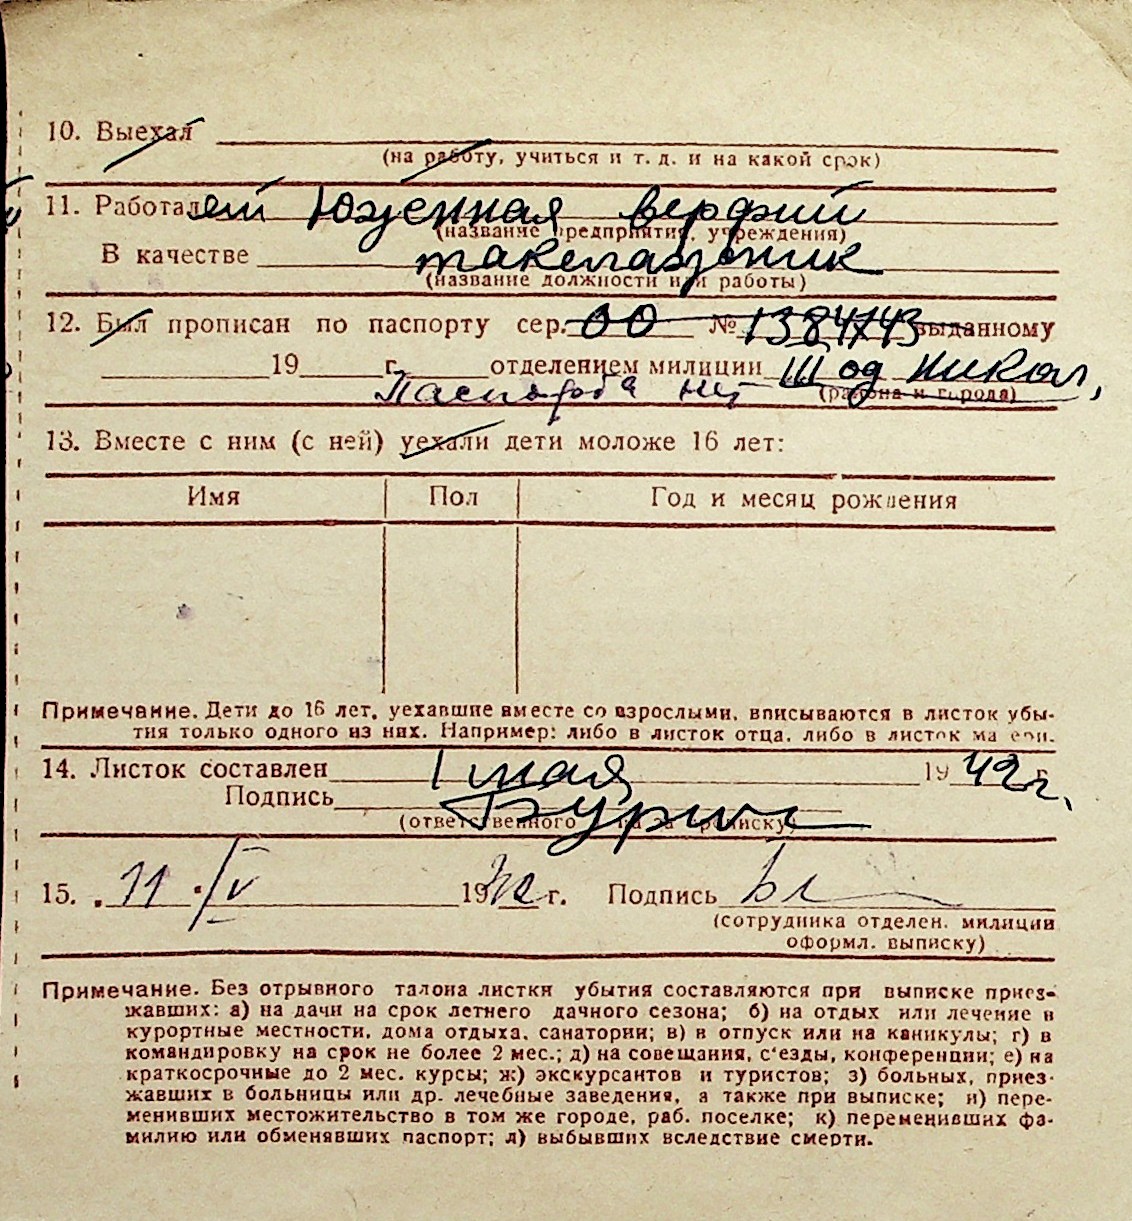 10. Выехал
(на работу, учиться и т. д. и на какой срок)
11. Работал Юженная верфий
(название предприятия, учреждения)
В качестве такелажник
(название должности или работы)
12. Был прописан по паспорту сер. 00 № 1384743 выданному
19 г. отделением милиции III од Никол,
Паспорта
(района и города)
13. Вместе с ним (с ней) уехали дети моложе 16 лет:
Имя Пол Год и месяц рождения
Примечание. Дети до 16 лет, уехавшие вместе со взрослыми, вписываются в листок убы-
тия только одного из них. Например: либо в листок отца, либо в листок матери.
14. Листок составлен 1 мая 1942 г.
Подпись
(ответственного за прописку)
15. 11 · V 1942 г. Подпись
(сотрудника отделен. милиции
оформл. выписку)
Примечание. Без отрывного талона листки убытия составляются при выписке приез-
жавших: а) на дачи на срок летнего дачного сезона; б) на отдых или лечение в
курортные местности, дома отдыха, санатории; в) в отпуск или на каникулы; г) в
командировку на срок не более 2 мес.; д) на совещания, с'езды, конференции; е) на
краткосрочные до 2 мес. курсы; ж) экскурсантов и туристов; з) больных, приез-
жавших в больницы или др. лечебные заведения, а также при выписке; и) пере-
менивших местожительство в том же городе, раб. поселке; к) переменивших фа-
милию или обменявших паспорт; л) выбывших вследствие смерти.